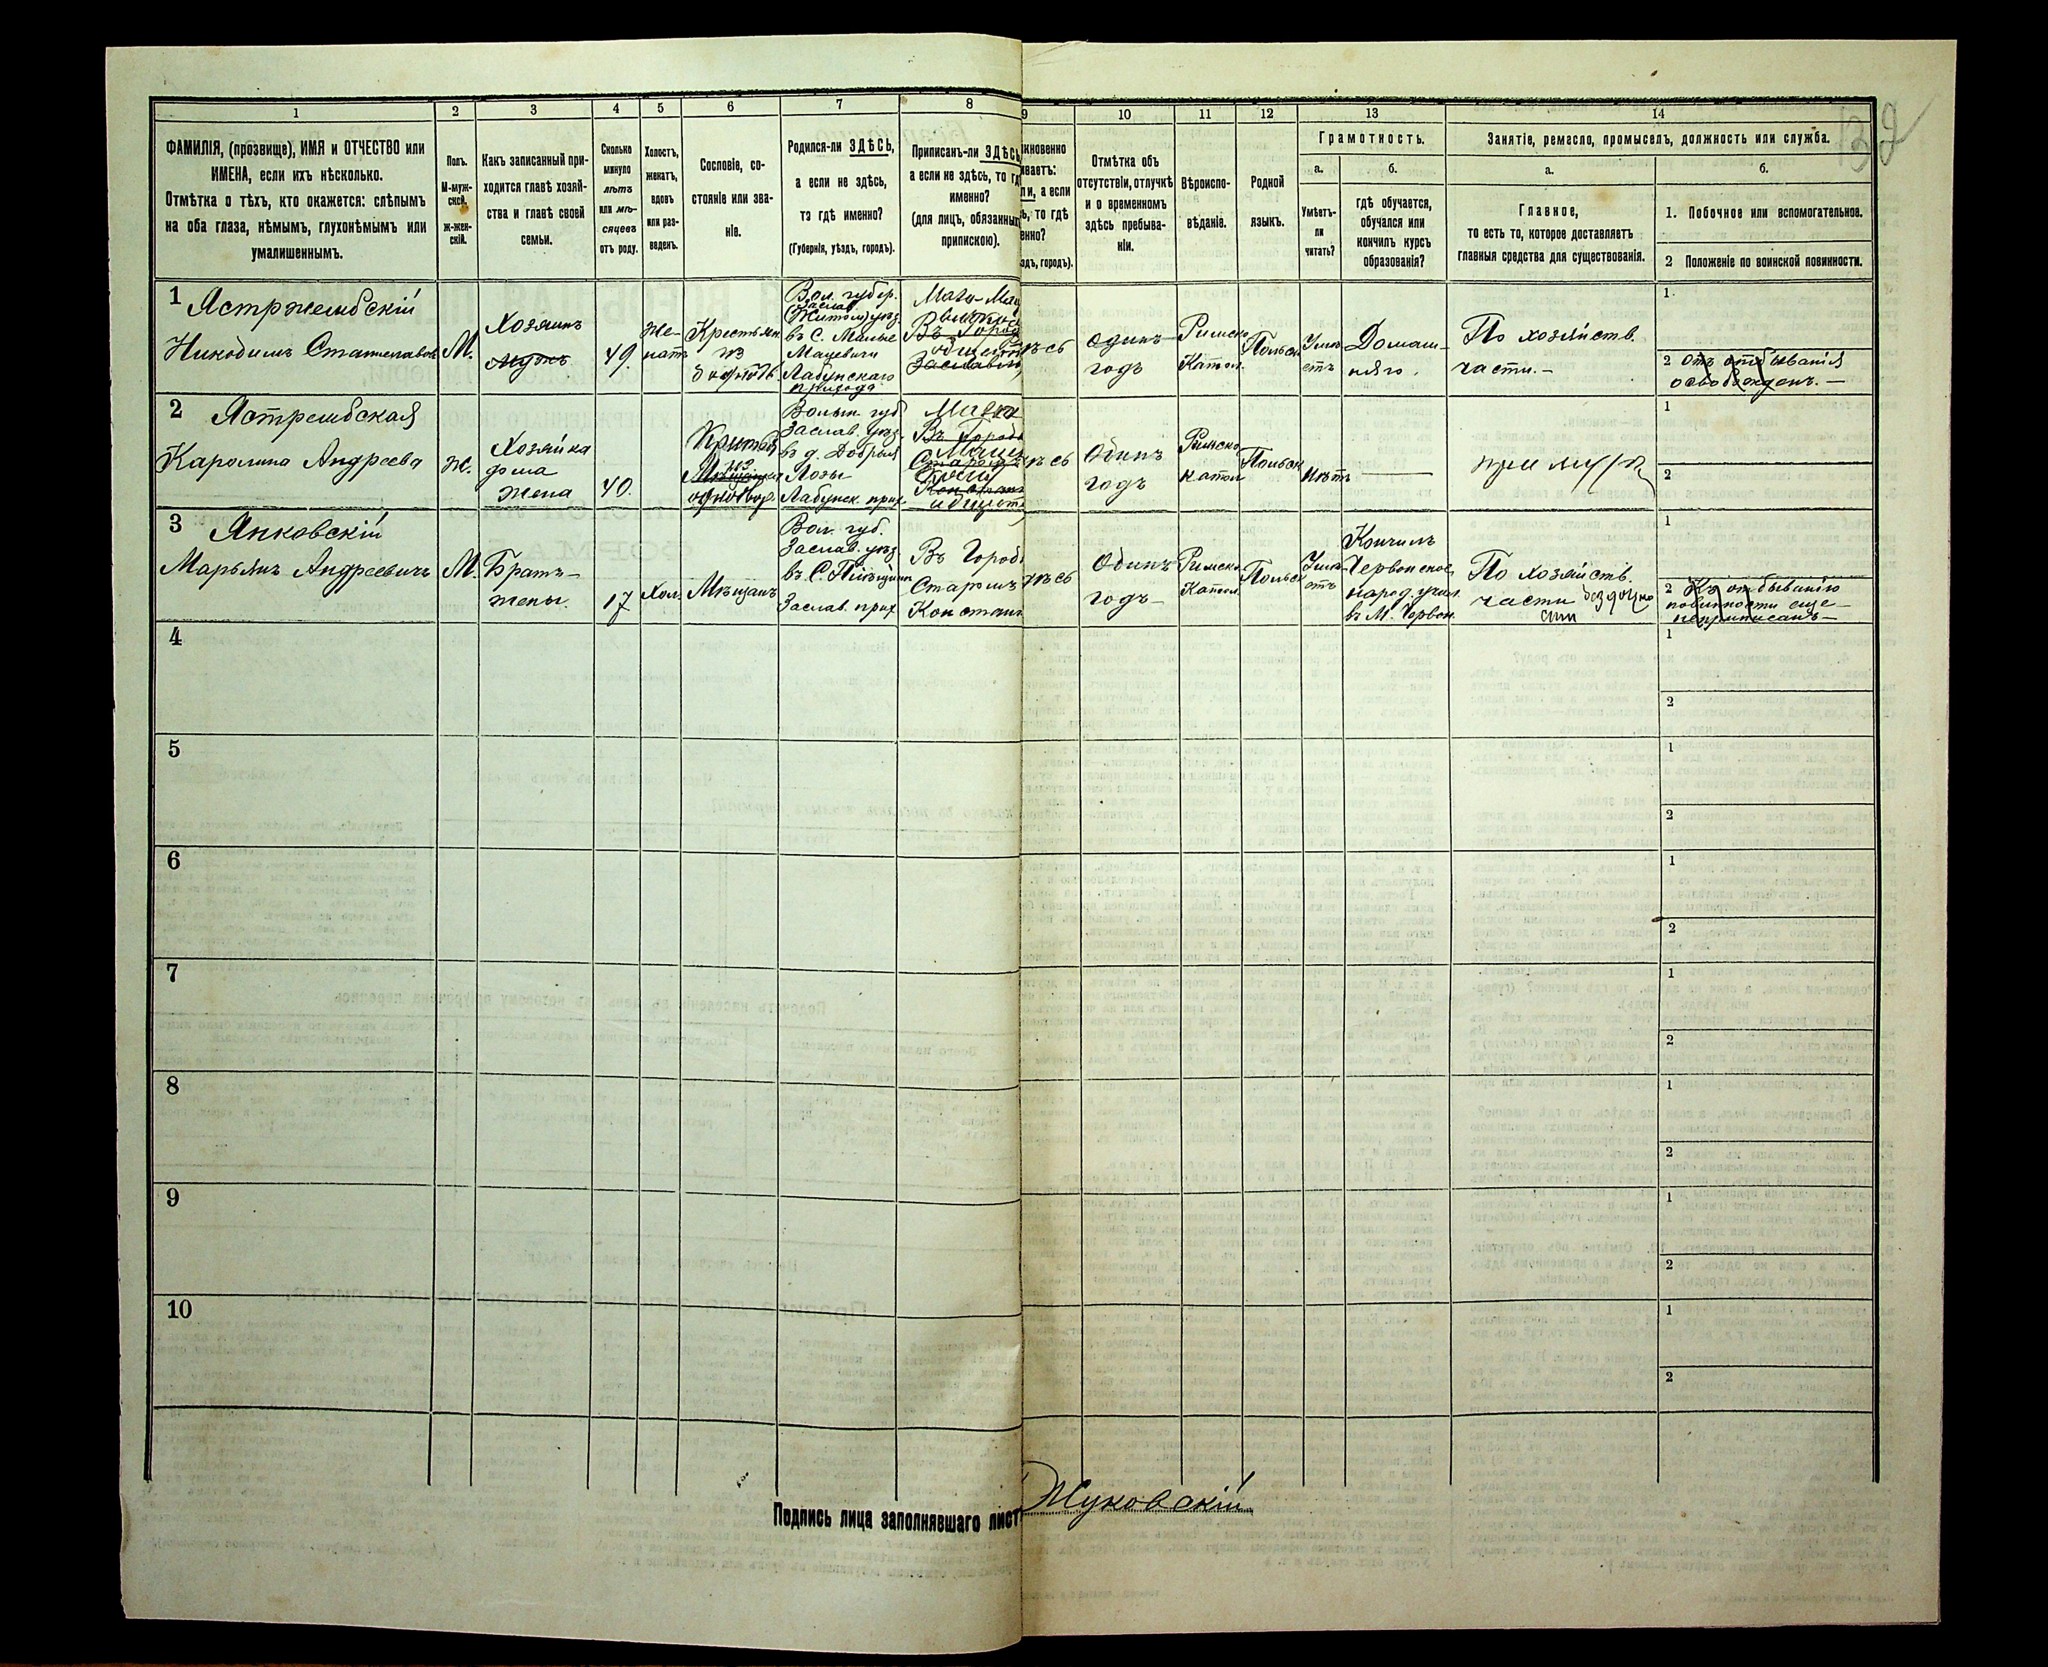 1 2 3 4 5 6 7 8 9 10 11 12 13 14
ФАМИЛІЯ, (прозвище), ИМЯ и ОТЧЕСТВО или
ИМЕНА, если ихъ нѣсколько.
Отмѣтка о тѣхъ, кто окажется: слѣпымъ
на оба глаза, нѣмымъ, глухонѣмымъ или
умалишеннымъ.
Полъ.
М-муж-
ской.
Ж-жен-
скій.
Какъ записанный при-
ходится главѣ хозяй-
ства и главѣ своей
семьи.
Сколько
минуло
лѣтъ
или мѣ-
сяцевъ
отъ роду.
Холостъ,
женатъ,
вдовъ
или раз-
веденъ.
Сословіе, со-
стояніе или зва-
ніе.
Родился-ли ЗДѢСЬ,
а если не здѣсь,
то гдѣ именно?
(Губернія, уѣздъ, городъ).
Приписанъ-ли ЗДѢСЬ,
а если не здѣсь, то гд
именно?
(для лицъ, обязанных
припискою).
кновенно
иваетъ:
ли, а если
ь, то гдѣ
енно?
здъ, городъ).
Отмѣтка объ
отсутствіи, отлучкѣ
и о временномъ
здѣсь пребыва-
ніи.
Вѣроиспо-
вѣданіе.
Родной
языкъ.
Грамотность.
а.
Умѣетъ-
ли
читать?
б.
гдѣ обучается,
обучался или
кончилъ курсъ
образованія?
Занятіе, ремесло, промыселъ, должность или служба.
а.
Главное,
то есть то, которое доставляетъ
главныя средства для существованія.
б.
1. Побочное или вспомогательное.
2 Положеніе по воинской повинности.
1 Ястржембскій
Никодимъ Станиславов
М.
Хозяинъ
мужъ
49.
Же-
натъ
Крестьян.
изъ
Вол. губер.
Заслав
уѣзд.
въ С. Малые
Мацевичи
Лабунскаго
прихода
Мало-Мац
Въ Город
общест
Заславск
ѣсь
одинъ
годъ
Римско
Катол.
Польск
Умѣ
етъ
Домаш-
няго.
По хозяйств.
части.-
1.
2 отъ отбыванія
освобожденъ.-
2 Ястрембская
Каролина Андреева
Ж.
Хозяйка
дома
Жена
40.
одновод
Волын. губ
Заслав. уѣзд.
въ д. Добрыя
Лозы
Лабунск. прих.
Мало
Въ Городѣ
Старом
общест
ѣсь
Одинъ
годъ
Римско
катол
Польск
Нѣтъ
при мужѣ
1
2
3 Янковскій
Марьянъ Андреевичъ
М.
Братъ-
жены.
17
Хол.
Мѣщанъ
Вол. губ.
Заслав. уѣзд.
въ С.
Заслав. прих.
Въ Городѣ
Старомъ
Констан
ѣсь
Одинъ
годъ-
Римско
Катол.
Польск
Умѣ
етъ
Кончилъ
Червонское
народ. учил.
въ М. Червон.
По хозяйств.
части
1
2 Къ отбыванію
повинности еще-
неприписанъ-
4
1
2
5
1
2
6
1
2
7
1
2
8
1
2
9
1
2
10
1
2
Подпись лица заполнявшаго лист
Жуковскій